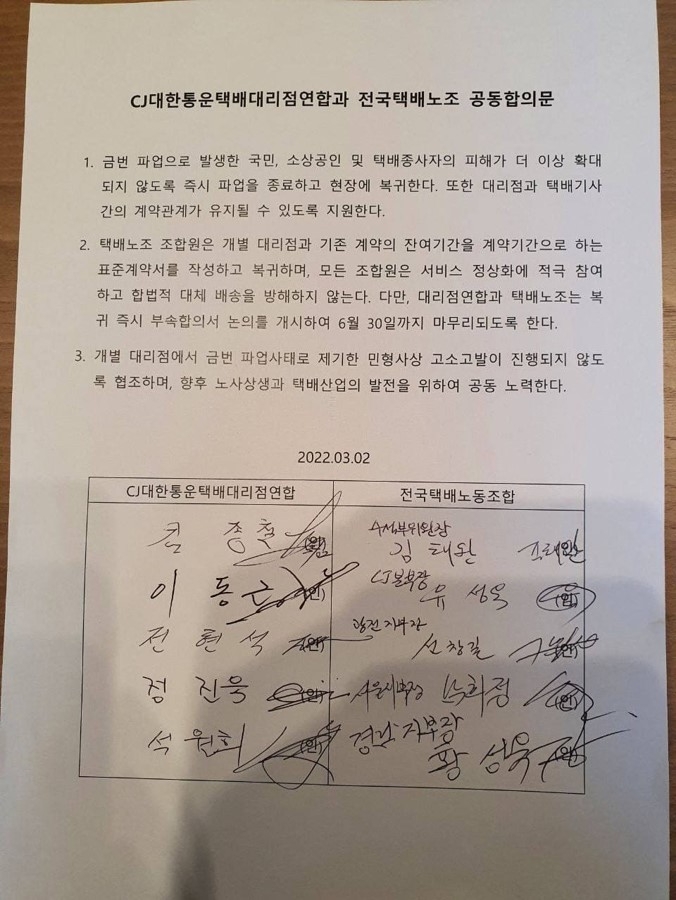 CJ대한통운택배대리점연합과 전국택배노조 공동합의문
1. 금번 파업으로 발생한 국민, 소상공인 및 택배종사자의 피해가 더 이상 확대
되지 않도록 즉시 파업을 종료하고 현장에 복귀한다. 또한 대리점과 택배기사
간의 계약관계가 유지될 수 있도록 지원한다.
2. 택배노조 조합원은 개별 대리점과 기존 계약의 잔여기간을 계약기간으로 하는
표준계약서를 작성하고 복귀하며, 모든 조합원은 서비스 정상화에 적극 참여
하고 합법적 대체 배송을 방해하지 않는다. 다만, 대리점연합과 택배노조는 복
귀 즉시 부속합의서 논의를 개시하여 6월 30일까지 마무리되도록 한다.
3. 개별 대리점에서 금번 파업사태로 제기한 민형사상 고소고발이 진행되지 않도
록 협조하며, 향후 노사상생과 택배산업의 발전을 위하여 공동 노력한다.
2022.03.02
CJ대한통운택배대리점연합 전국택배노동조합
김 종철 (인) 수석부위원장
김 태완
이 동근 (인) CJ본부장
유 성욱 (인)
전 현석 (인) 지부장
창길 (인)
정 진욱 (인) 서울지부장 (인)
석 원희 (인) 경남지부장
황 성욱 (인)